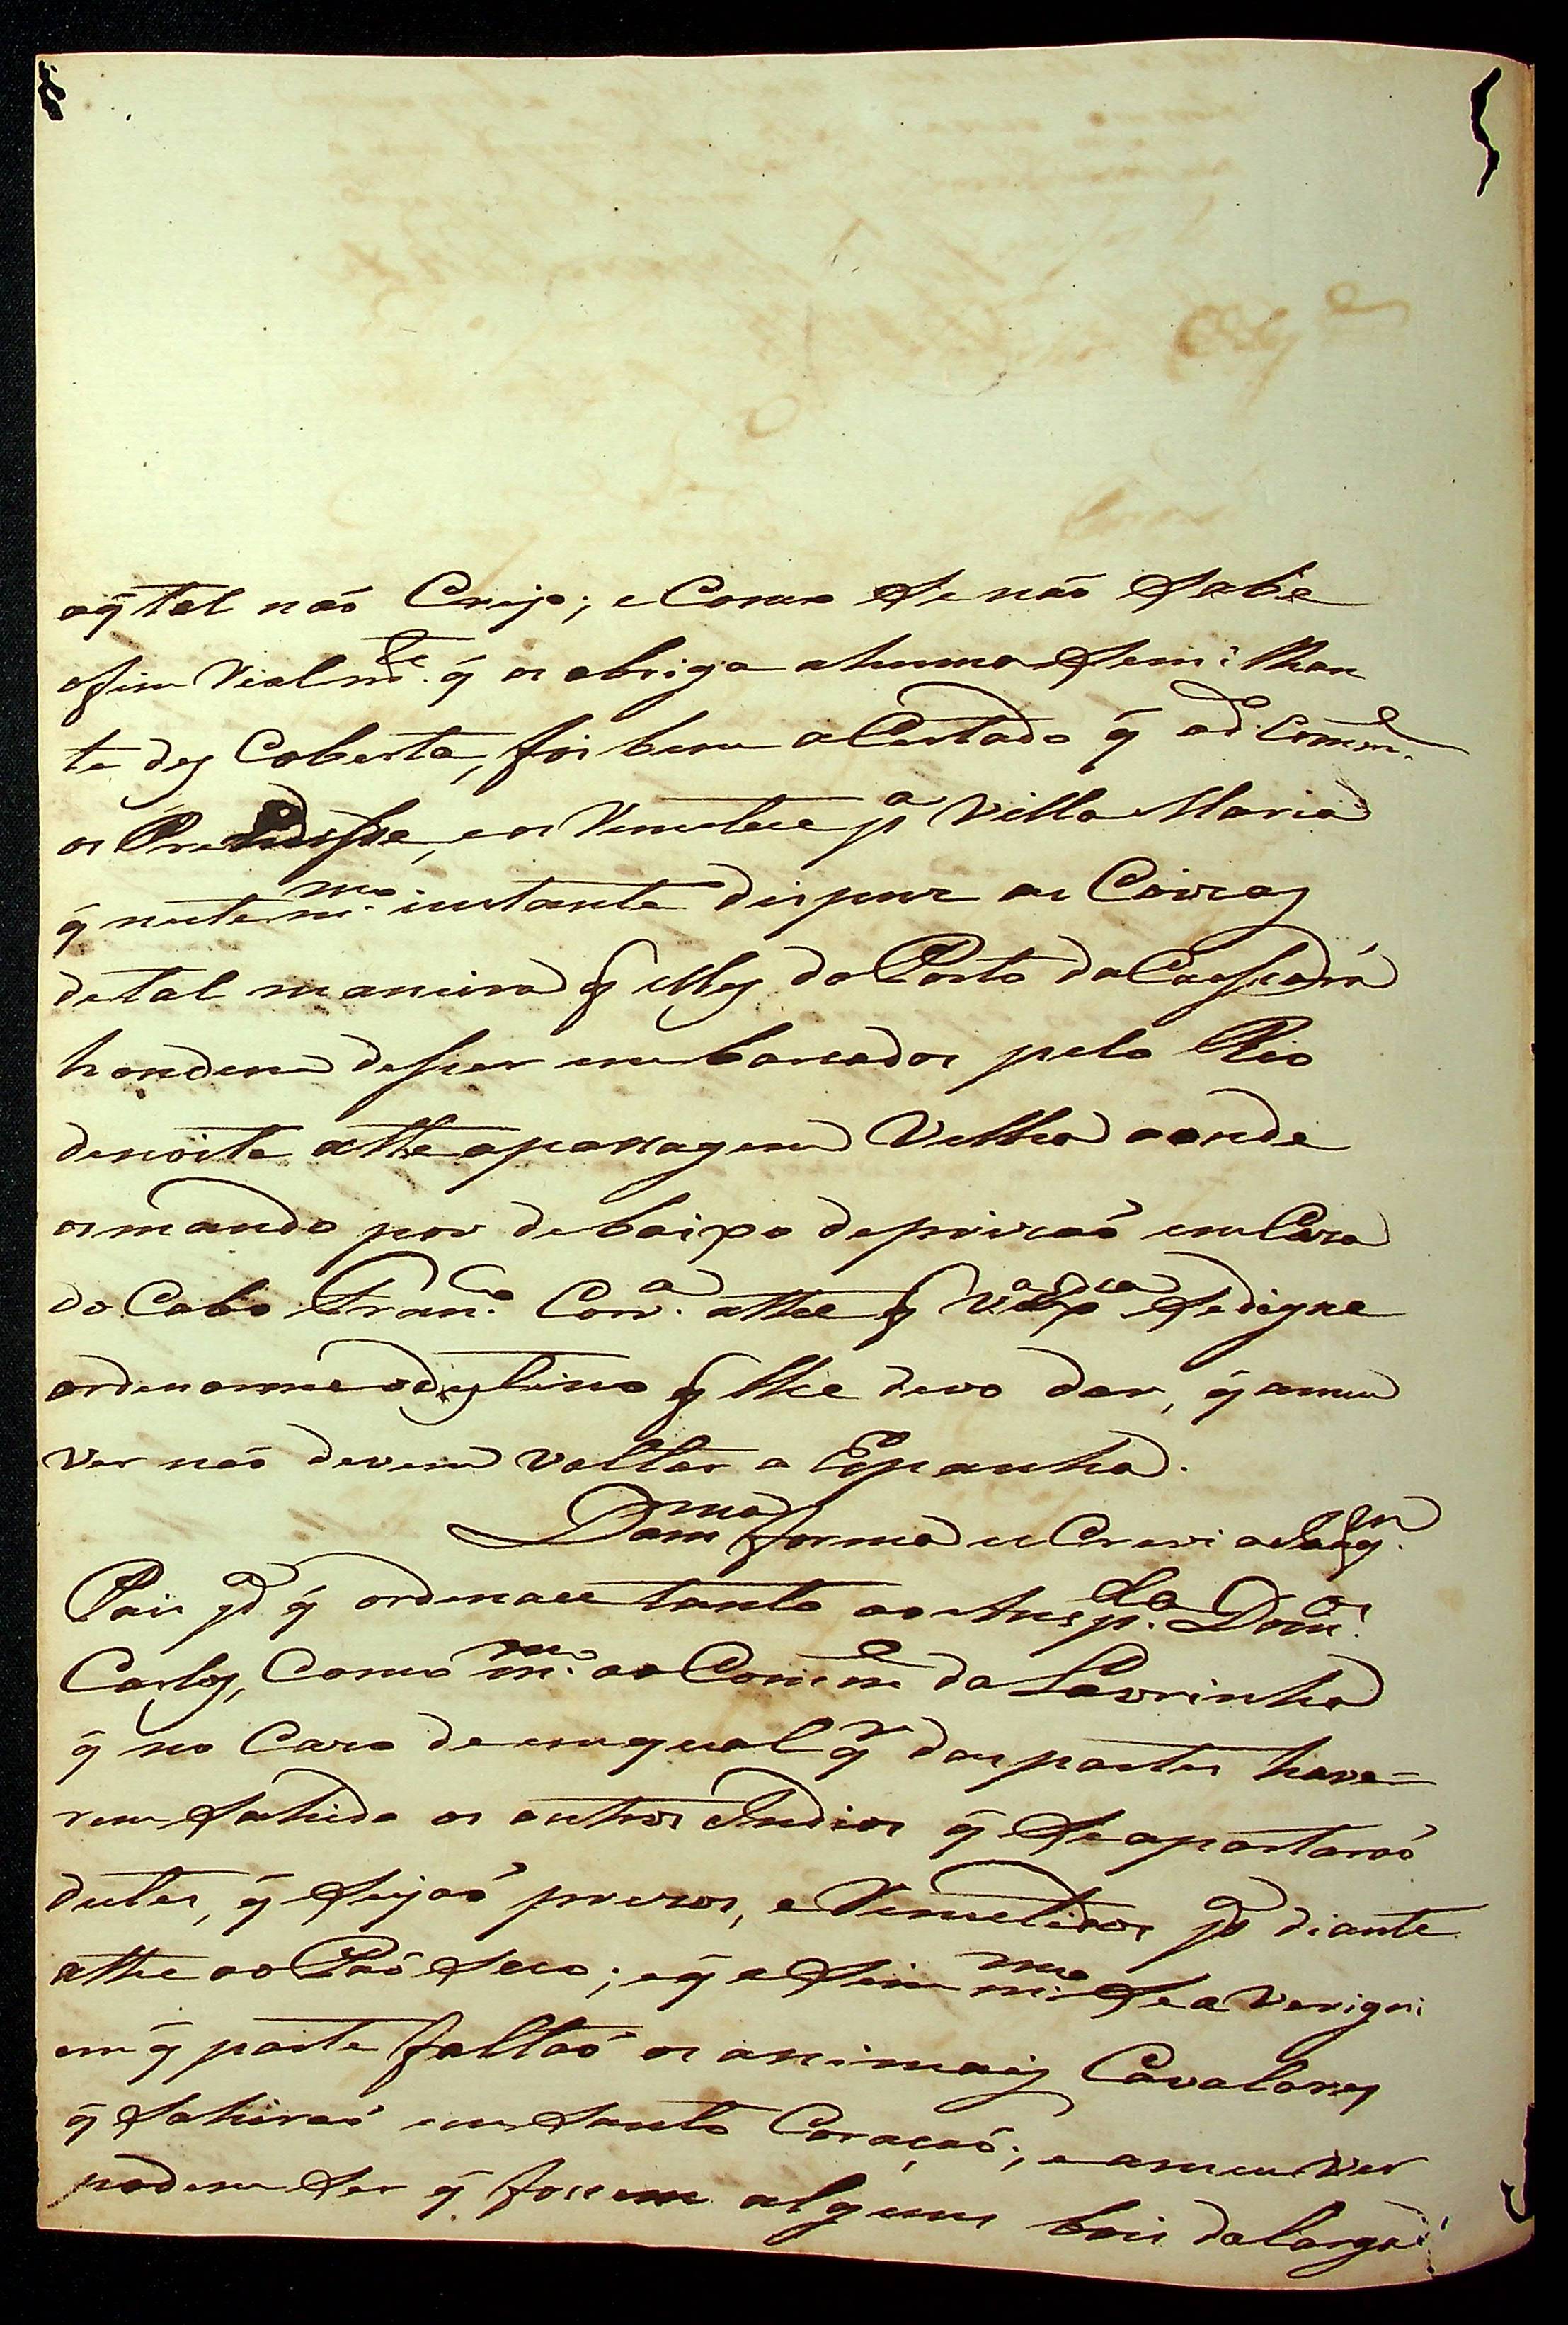 aq̃ tal naõ Creyo; e Como Se naõ Sabe
ofim Realm.te q̃ os obriga ahuma Semilhan
te des Coberta, foi bem aCertado q̃ od.º Comm.e
os Prendesse, eos Remetece p.a Villa Maria
q̃ neste m.mo instante dispuz as Coizas
detal maneira q̃ elles do Porto da
handem desser embarcados pelo Rio
denoite athe apassagem Velha aonde
osmando por debaixo deprizaõ em Caza
do Cabo Fran.co Corr.a athe q̃ V. Ex.a Sedigne
ordenarme odestino q̃ lhe devo dar, q̃ ameu
ver naõ devem voltar a Espanha.
Dam.ma forma escrevi a
Pais p.a q̃ ordenace tanto ao Ansp.da Dom.os
Carlos, Como m.mo ao Comm.e da Lavrinha
q̃ no Cazo deemqual q̃r das partes have=
rem Sahido os outros Indios q̃ Seapartaraõ
destes, q̃ Sejaõ prezos, e Remetidos p.a diante
athe ao Páo Seco; eq̃ aSim m.mo Se averigui
em q̃ parte faltaõ os animais Cavalares
q̃ Sahiraõ em Santo Coraçaõ; e ameu ver
podem Ser q̃ fossem alguns bois dalarga